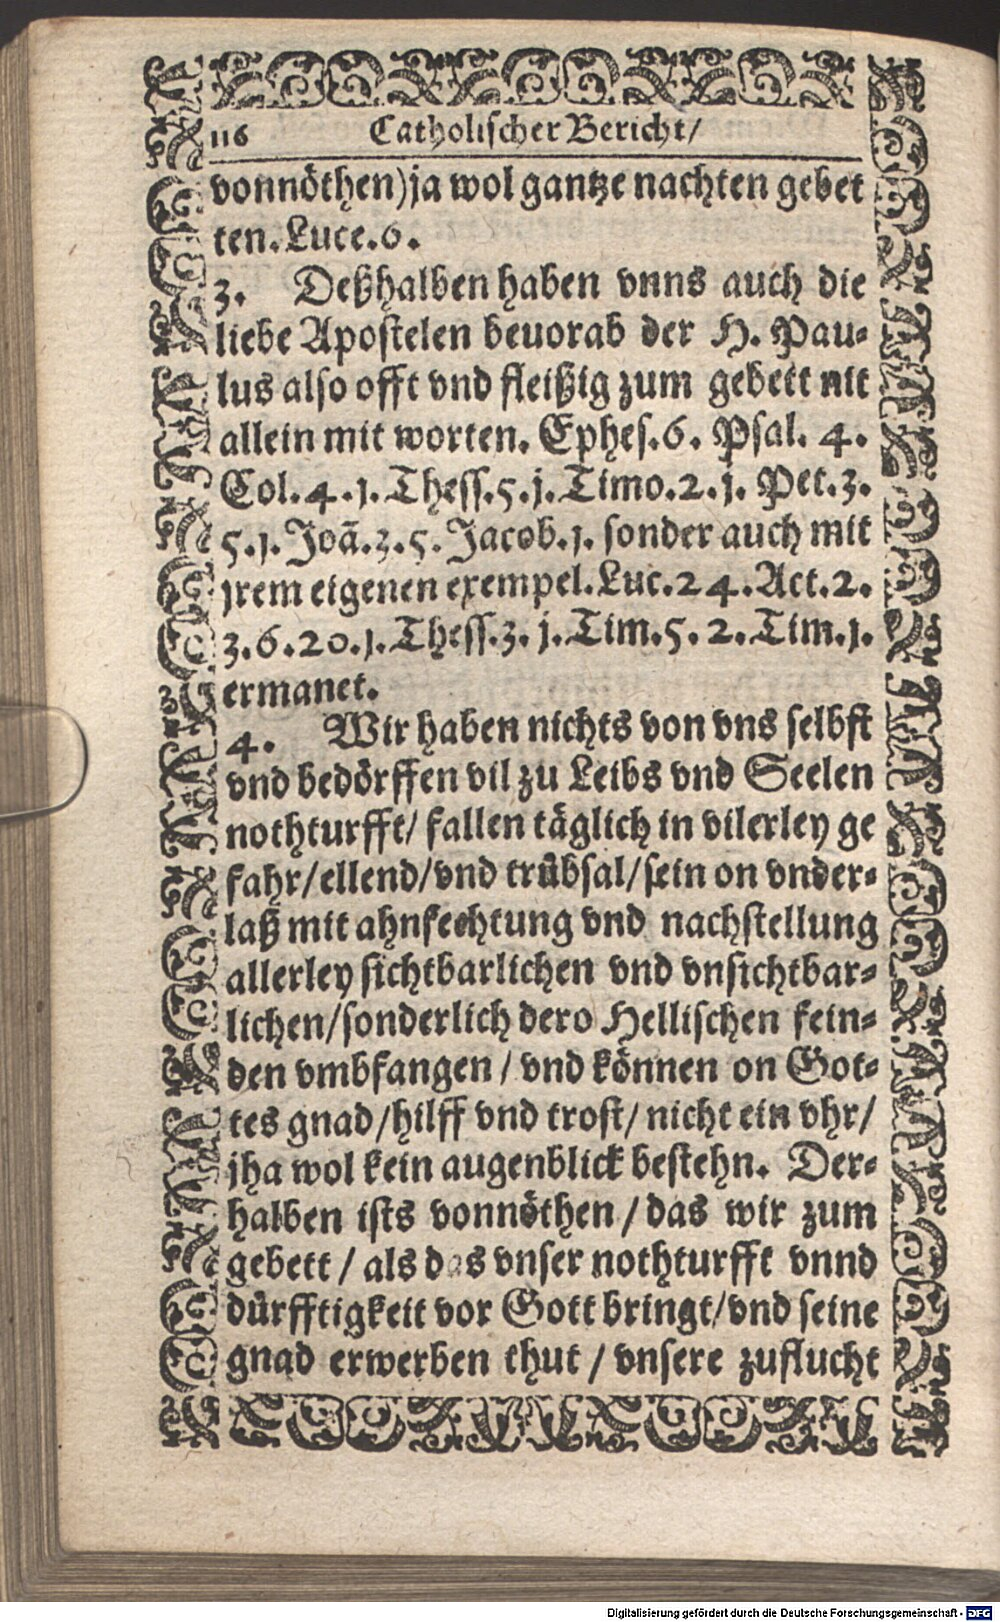 116 Catholischer Bericht/
vonnöthen) ja wol gantze nachten gebet
ten. Luce. 6.
3. Deßhalben haben vnns auch die
liebe Apostelen beuorab der H. Pau-
lus also offt vnd fleißig zum gebett nit
allein mit worten. Ephes. 6. Psal. 4.
Col. 4. 1. Thess. 5. j. Timo. 2. j. Pet. 3.
5. 1. Joã. 3. 5. Jacob. 1. sonder auch mit
jrem eigenen exempel. Luc. 24. Act. 2.
3. 6. 20. 1. Thess. 3. j. Tim. 5. 2. Tim. 1.
ermanet.
4. Wir haben nichts von vns selbst
vnd bedörffen vil zu Leibs vnd Seelen
nothturfft/ fallen täglich in vilerley ge
fahr/ ellend/ vnd trübsal/ sein on vnder-
laß mit ahnfechtung vnd nachstellung
allerley sichtbarlichen vnd vnsichtbar-
lichen/ sonderlich dero Hellischen fein-
den vmbfangen/ vnd können on Got-
tes gnad/ hilff vnd trost/ nicht ein vhr/
jha wol kein augenblick bestehn. Der-
halben ists vonnöthen/ das wir zum
gebett/ als das vnser nothturfft vnnd
dürfftigkeit vor Gott bringt/ vnd seine
gnad erwerben thut/ vnsere zuflucht
Digitalisierung gefördert durch die Deutsche Forschungsgemeinschaft - DFG